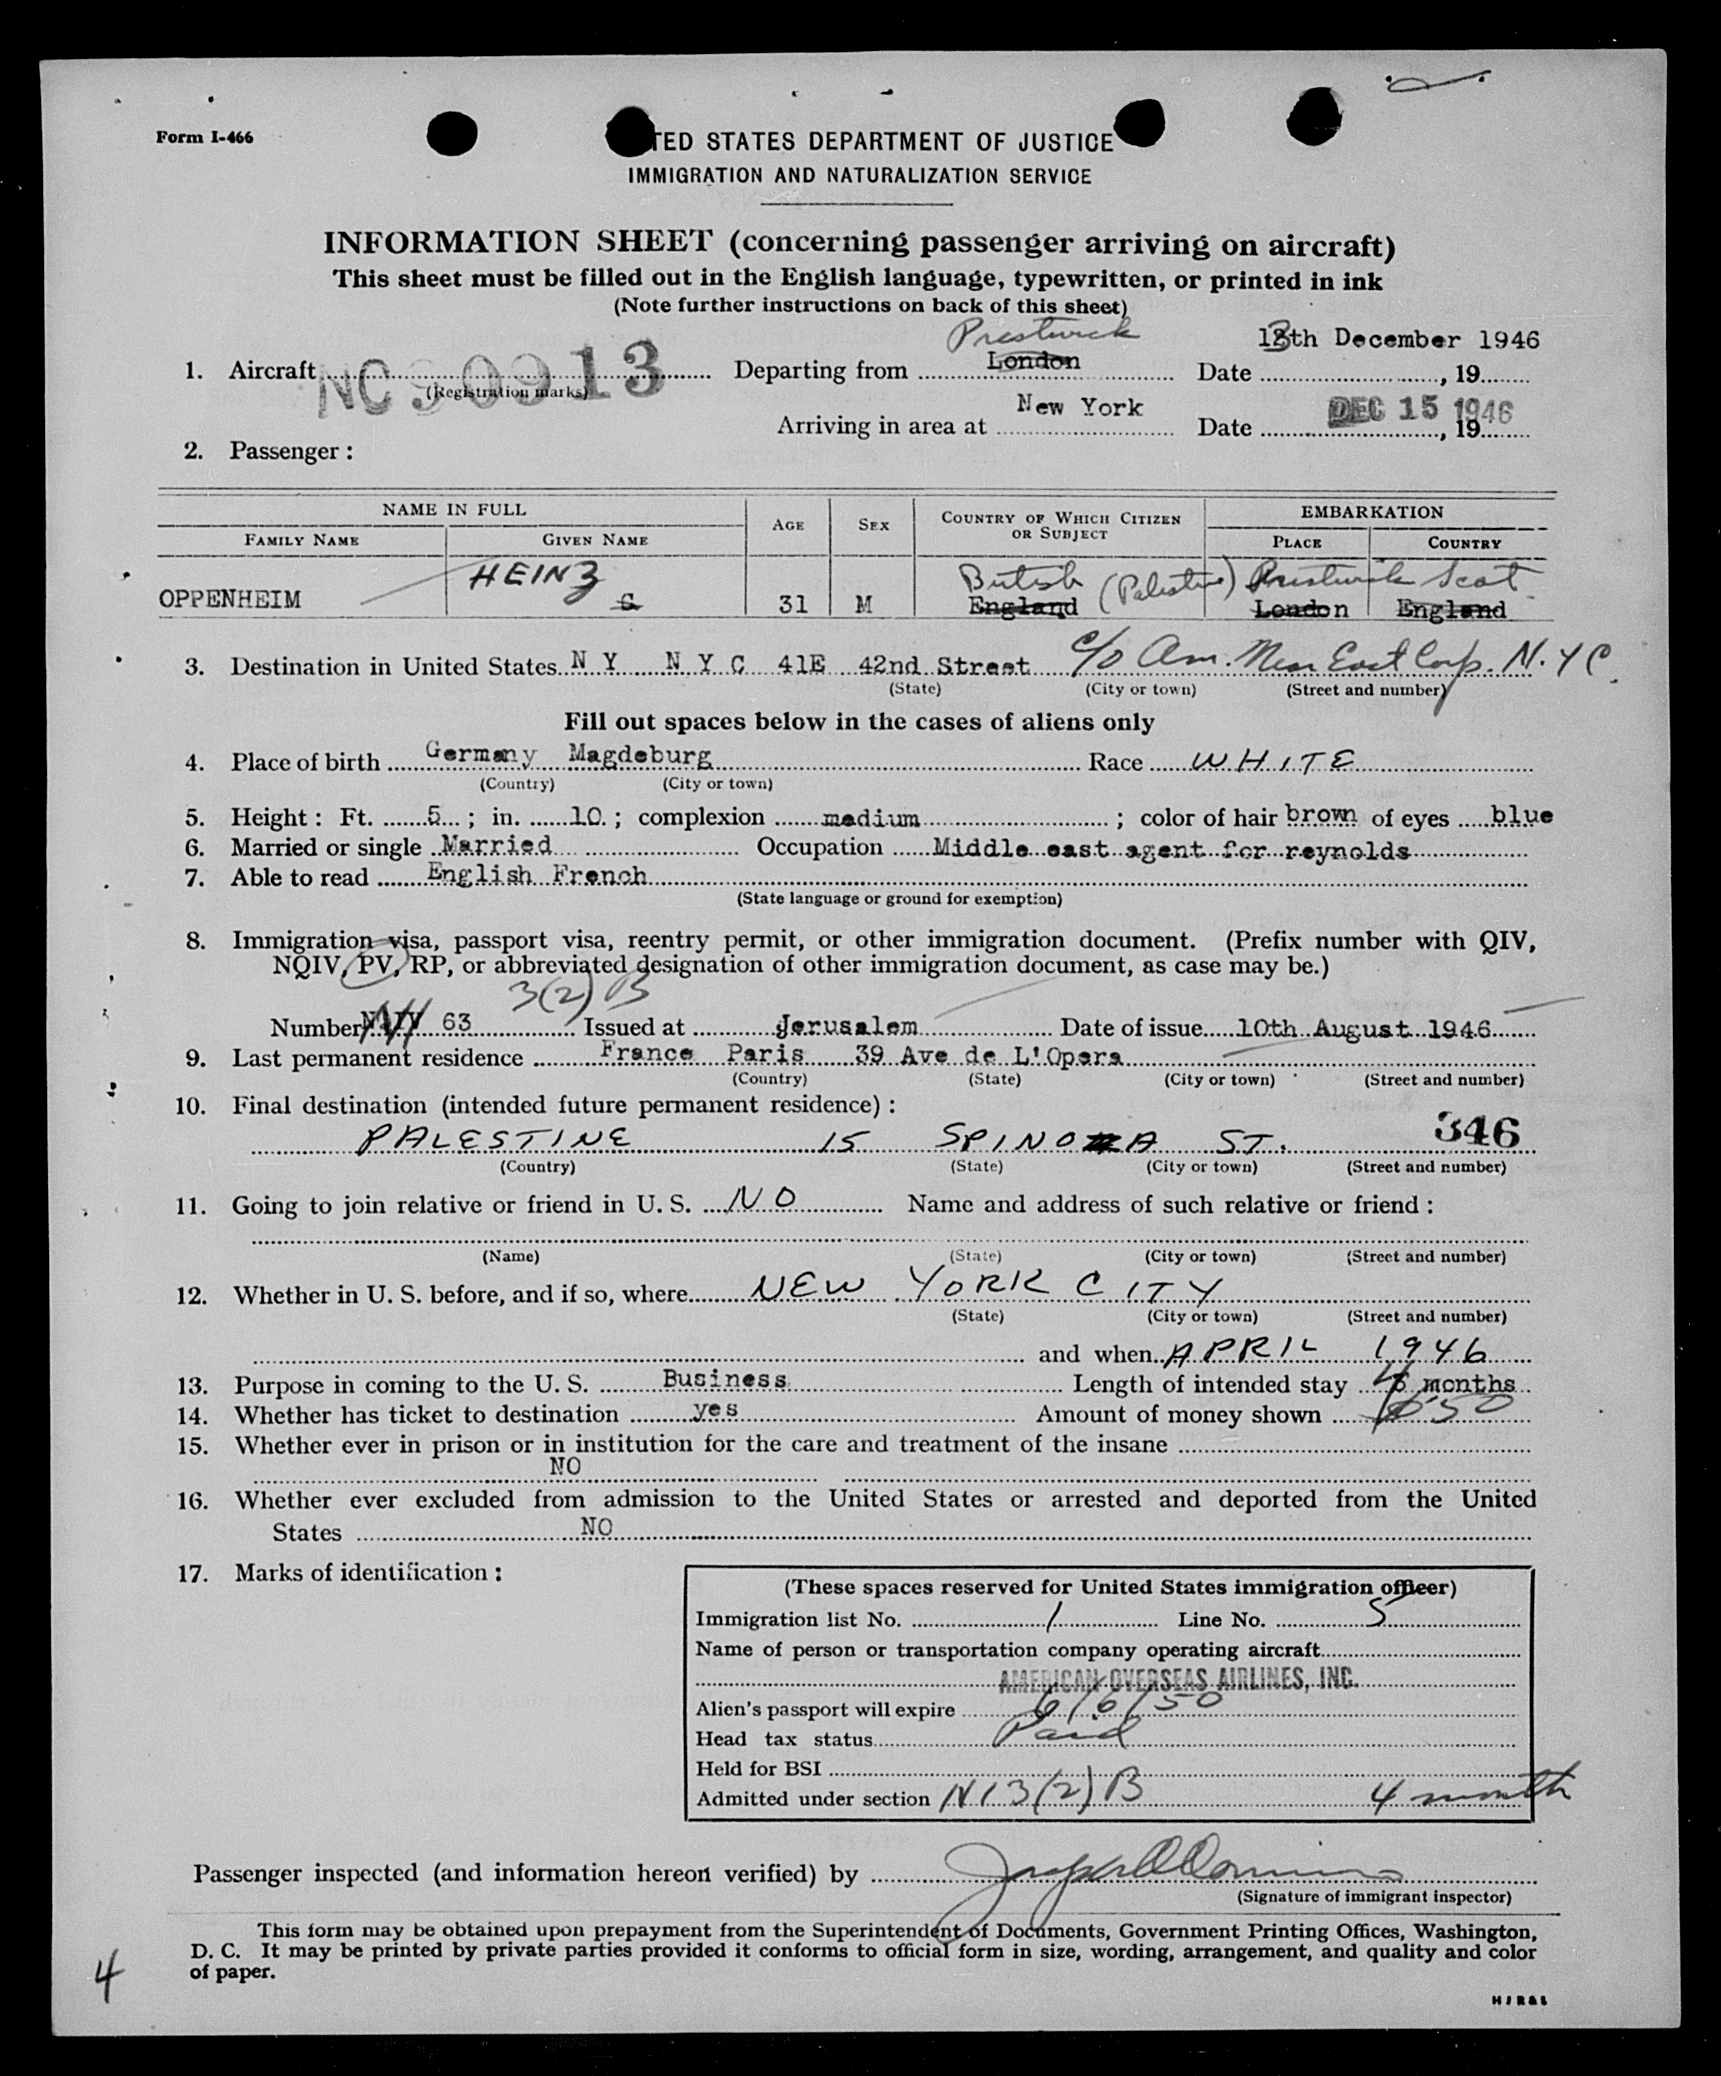 Form I-466
TED STATES DEPARTMENT OF JUSTICE
IMMIGRATION AND NATURALIZATION SERVICE
INFORMATION SHEET (concerning passenger arriving on aircraft)
This sheet must be filled out in the English language, typewritten, or printed in ink
(Note further instructions on back of this sheet)
Prestwick 13th December 1946
1. Aircraft NC 90913 Departing from London Date , 19
(Registration marks)
New York DEC 15 1946
Arriving in area at Date , 19
2. Passenger :
NAME IN FULL AGE SEX COUNTRY OF WHICH CITIZEN OR SUBJECT EMBARKATION
FAMILY NAME GIVEN NAME PLACE COUNTRY
HEINZ British (Palestine) Prestwick Scot
OPPENHEIM G 31 M England London England
3. Destination in United States N Y N Y C 41E 42nd Street c/o Am. Near East Corp. N.Y C.
(State) (City or town) (Street and number)
Fill out spaces below in the cases of aliens only
4. Place of birth Germany Magdeburg Race WHITE
(Country) (City or town)
5. Height : Ft. 5 ; in. 10 ; complexion medium ; color of hair brown of eyes blue
6. Married or single Married Occupation Middle east agent for reynolds
7. Able to read English French
(State language or ground for exemption)
8. Immigration visa, passport visa, reentry permit, or other immigration document. (Prefix number with QIV,
NQIV, PV, RP, or abbreviated designation of other immigration document, as case may be.)
3(2) B
Number 63 Issued at Jerusalem Date of issue 10th August 1946
9. Last permanent residence France Paris 39 Ave de L'Opera
(Country) (State) (City or town) (Street and number)
10. Final destination (intended future permanent residence) :
346
PALESTINE 15 SPINOZA ST.
(Country) (State) (City or town) (Street and number)
11. Going to join relative or friend in U. S. NO Name and address of such relative or friend :
(Name) (State) (City or town) (Street and number)
12. Whether in U. S. before, and if so, where NEW YORK CITY
(State) (City or town) (Street and number)
and when APRIL 1946
13. Purpose in coming to the U. S. Business Length of intended stay 4 months
14. Whether has ticket to destination yes Amount of money shown
15. Whether ever in prison or in institution for the care and treatment of the insane
NO
16. Whether ever excluded from admission to the United States or arrested and deported from the United
States NO
17. Marks of identification :
(These spaces reserved for United States immigration officer)
Immigration list No. 1 Line No. 5
Name of person or transportation company operating aircraft
AMERICAN OVERSEAS AIRLINES, INC.
Alien's passport will expire 6/6/50
Head tax status Paid
Held for BSI
Admitted under section 3(2) B 4 month
Passenger inspected (and information hereon verified) by
(Signature of immigrant inspector)
This form may be obtained upon prepayment from the Superintendent of Documents, Government Printing Offices, Washington,
D. C. It may be printed by private parties provided it conforms to official form in size, wording, arrangement, and quality and color
of paper.
4